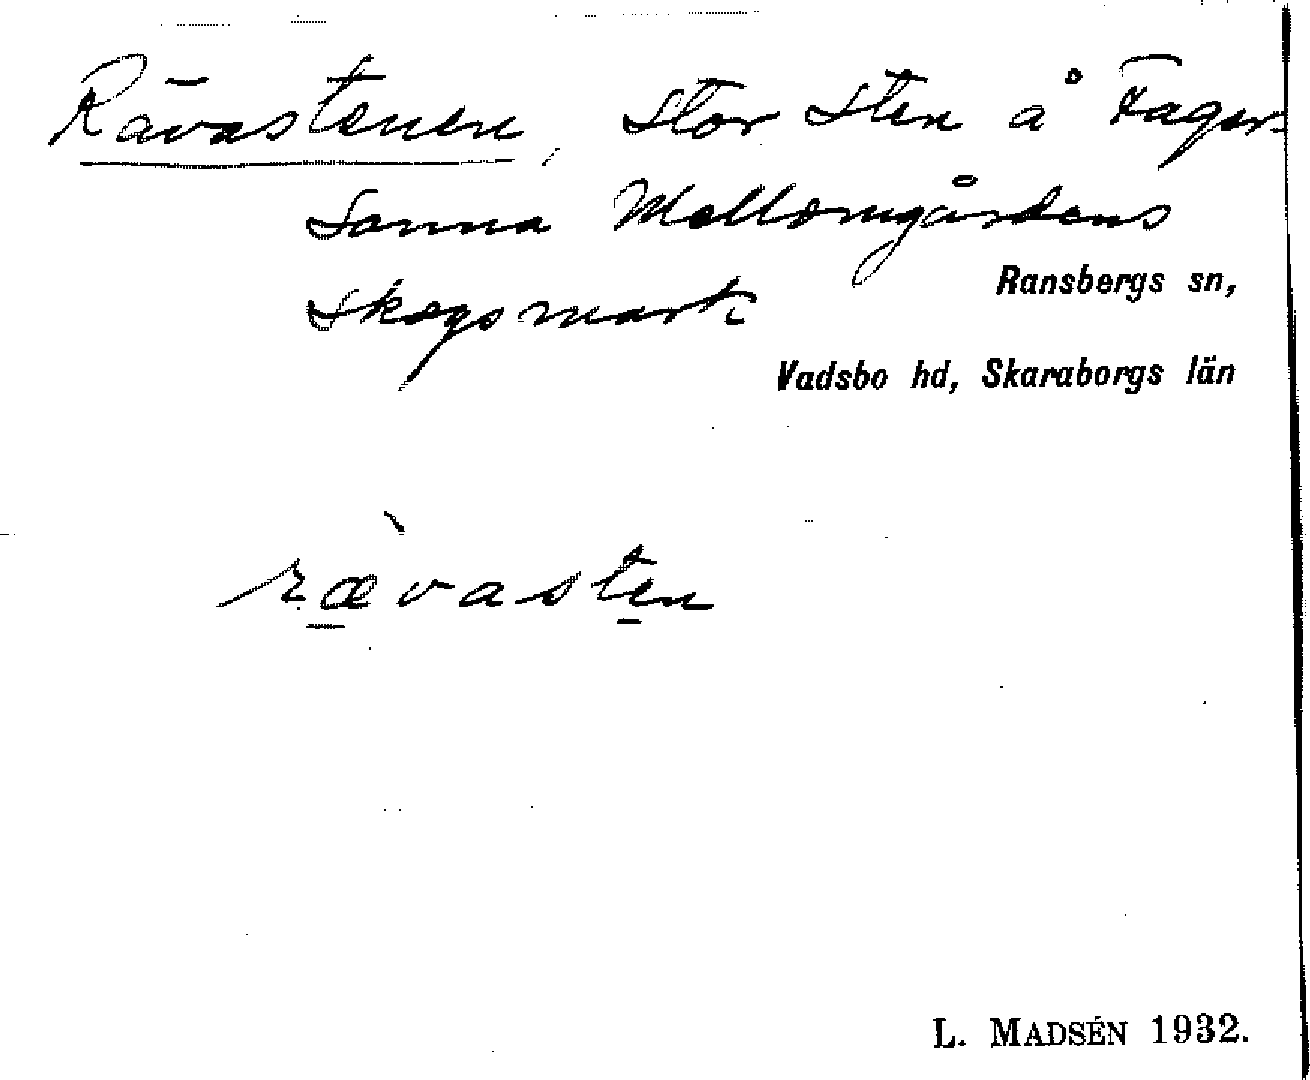 Rävastenen, stor sten å Fager-
sanna Mellomgårdens
skogsmark
Ransbergs sn,
Vadsbo hd, Skaraborgs län
ræ̀vasten
L. MADSÉN 1932.